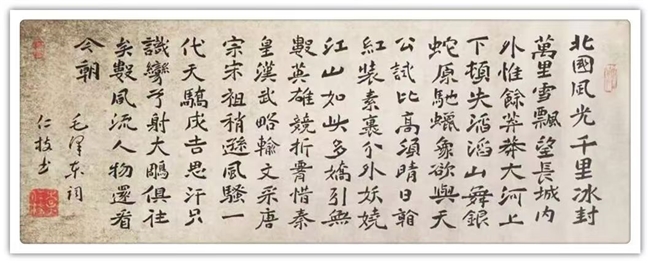 北國風光千里冰封
萬里雪飄望長城內
外惟餘莽莽大河上
下頓失滔滔山舞銀
蛇原馳蠟象欲與天
公試比高須晴日
紅裝素裹分外妖嬈
江山如此多嬌引無
數英雄競折惜秦
皇漢武略輸文采唐
宗宋祖稍遜風騷一
代天驕成吉思汗只
識彎弓射大鵰俱往
矣數風流人物還看
今朝
毛澤东詞
仁技书